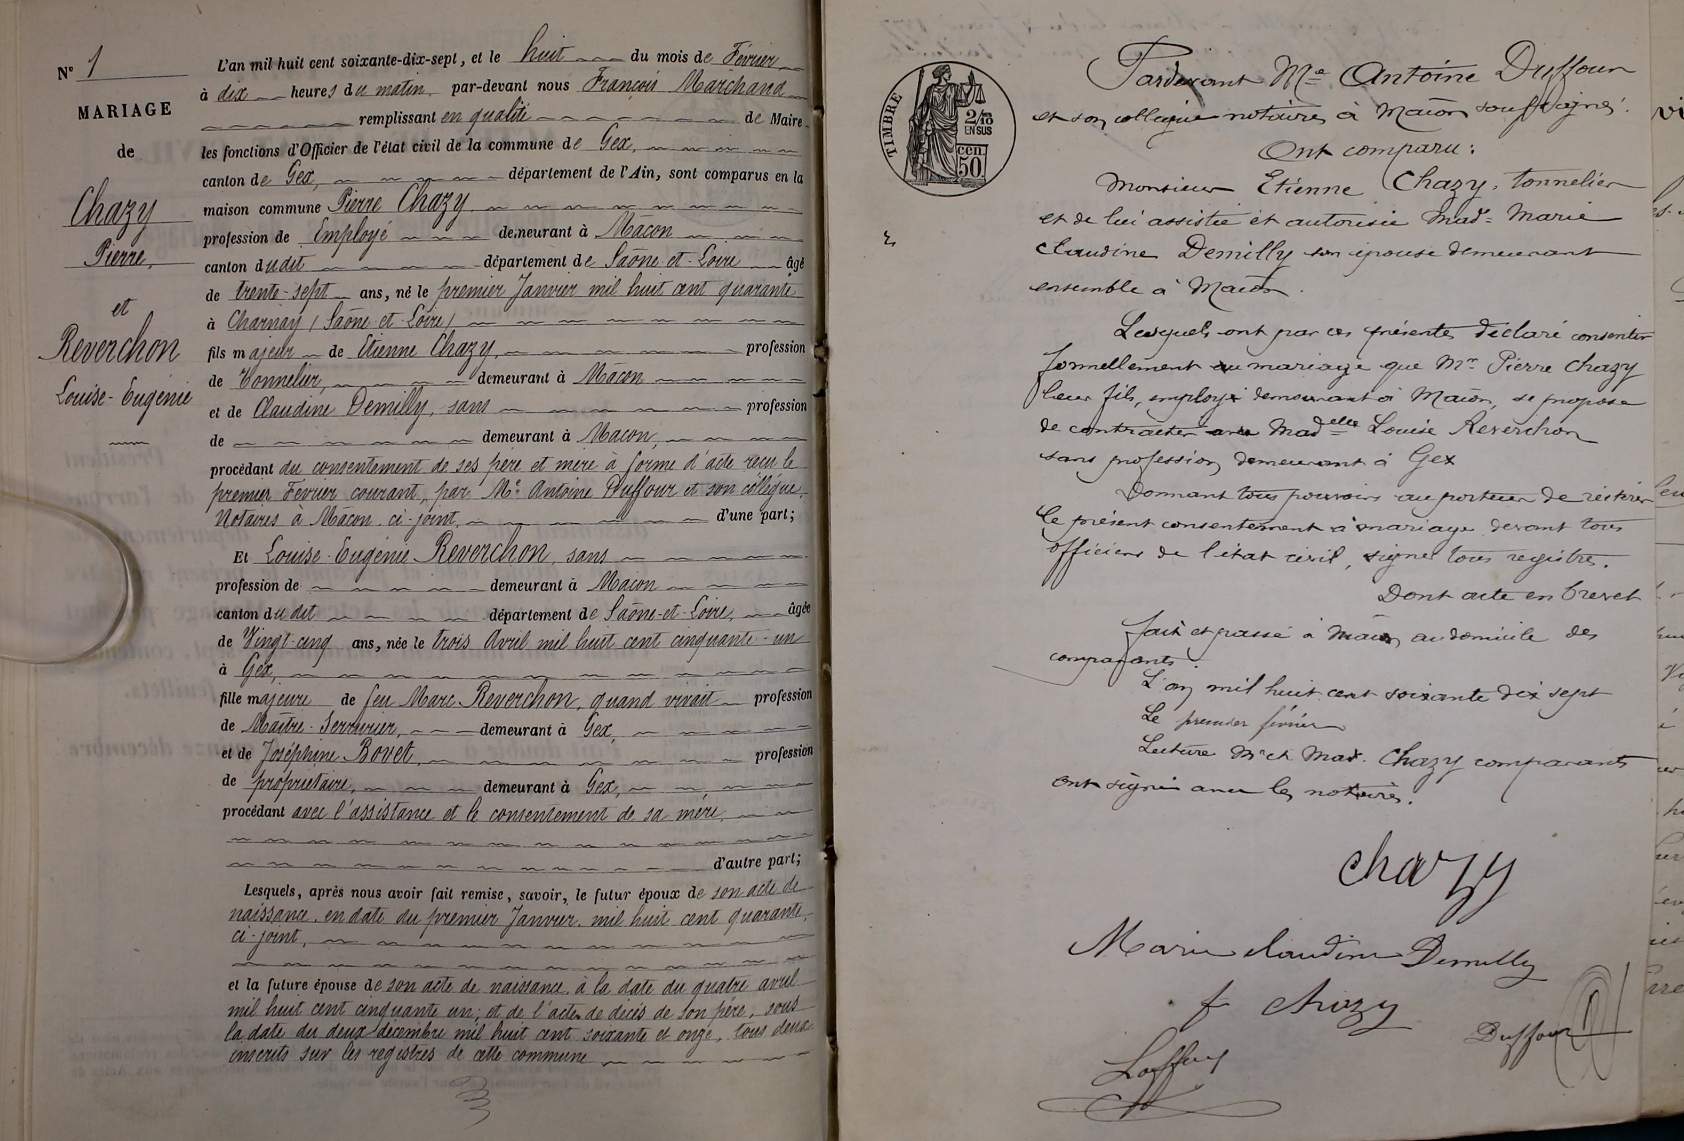 N° 1
MARIAGE
de
Chazy
Pierre,
et
Reverchon
Louise-Eugénie
L'an mil huit cent soixante-dix-sept, et le huit du mois de Février
à dix heures du matin par-devant nous François Marchand
remplissant en qualité de Maire
les fonctions d'Officier de l'état civil de la commune de Gex,
canton de Gex, département de l'Ain, sont comparus en la
maison commune Pierre Chazy
profession de Employé demeurant à Mâcon
canton dudit département de Saône-et-Loire âgé
de trente-sept ans, né le premier Janvier mil huit cent quarante
à Charnay (Saône-et-Loire)
fils majeur de Etienne Chazy, profession
de Tonnelier, demeurant à Mâcon
et de Claudine Demilly, sans profession
de demeurant à Mâcon,
procédant du consentement de ses père et mère à forme d'acte reçu le
premier Février courant, par Me Antoine Duffour et son collègue,
Notaires à Mâcon, ci-joint, d'une part;
Et Louise-Eugénie Reverchon, sans
profession de demeurant à Mâcon
canton dudit département de Saône-et-Loire, âgée
de Vingt-cinq ans, née le trois Avril mil huit cent cinquante-un
à Gex,
fille majeure de feu Marc Reverchon, quand vivait profession
de Maître-Serrurier, demeurant à Gex,
et de Joséphine Bovet, profession
de propriétaire, demeurant à Gex,
procédant avec l'assistance et le consentement de sa mère,
d'autre part;
Lesquels, après nous avoir fait remise, savoir, le futur époux de son acte de
naissance, en date du premier Janvier mil huit cent quarante,
ci-joint,
et la future épouse de son acte de naissance à la date du quatre avril
mil huit cent cinquante un, et de l'acte de décès de son père, sous
la date du deux décembre mil huit cent soixante et onze, tous deux
inscrits sur les registres de cette commune
TIMBRE
2/10
EN SUS
cen.
50.
Pardevant Me Antoine Duffour
et son collègue notaires à Macon soussignés.
Ont comparu:
Monsieur Etienne Chazy, tonnelier
et de lui assistée et autorisée Made Marie
Claudine Demilly son épouse demeurant
ensemble à Macon.
Lesquels ont par ces présentes déclaré consentir
formellement au mariage que Mr Pierre Chazy
leur fils, employé demeurant à Macon, se propose
de contracter avec Madelle Louise Reverchon
sans profession demeurant à Gex
Donnant tous pouvoirs au porteur de réitérer
le présent consentement à mariage devant tous
officiers de l'état civil, signer tous registres.
Dont acte en brevet
fait et passé à Macon au domicile des
comparants.
L'an mil huit cent soixante dix sept
Le premier février
Lecture Mr et Made Chazy comparants
ont signé avec les notaires.
Chazy
Marie claudine Demilly
f chazy
Duffour